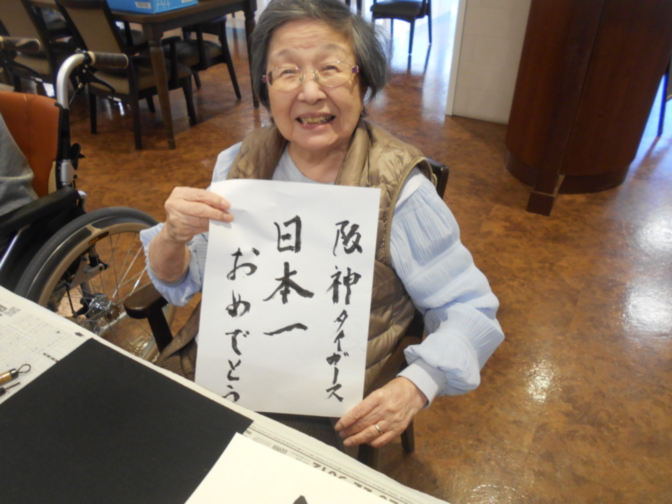 阪神タイガース
日本一
おめでとう